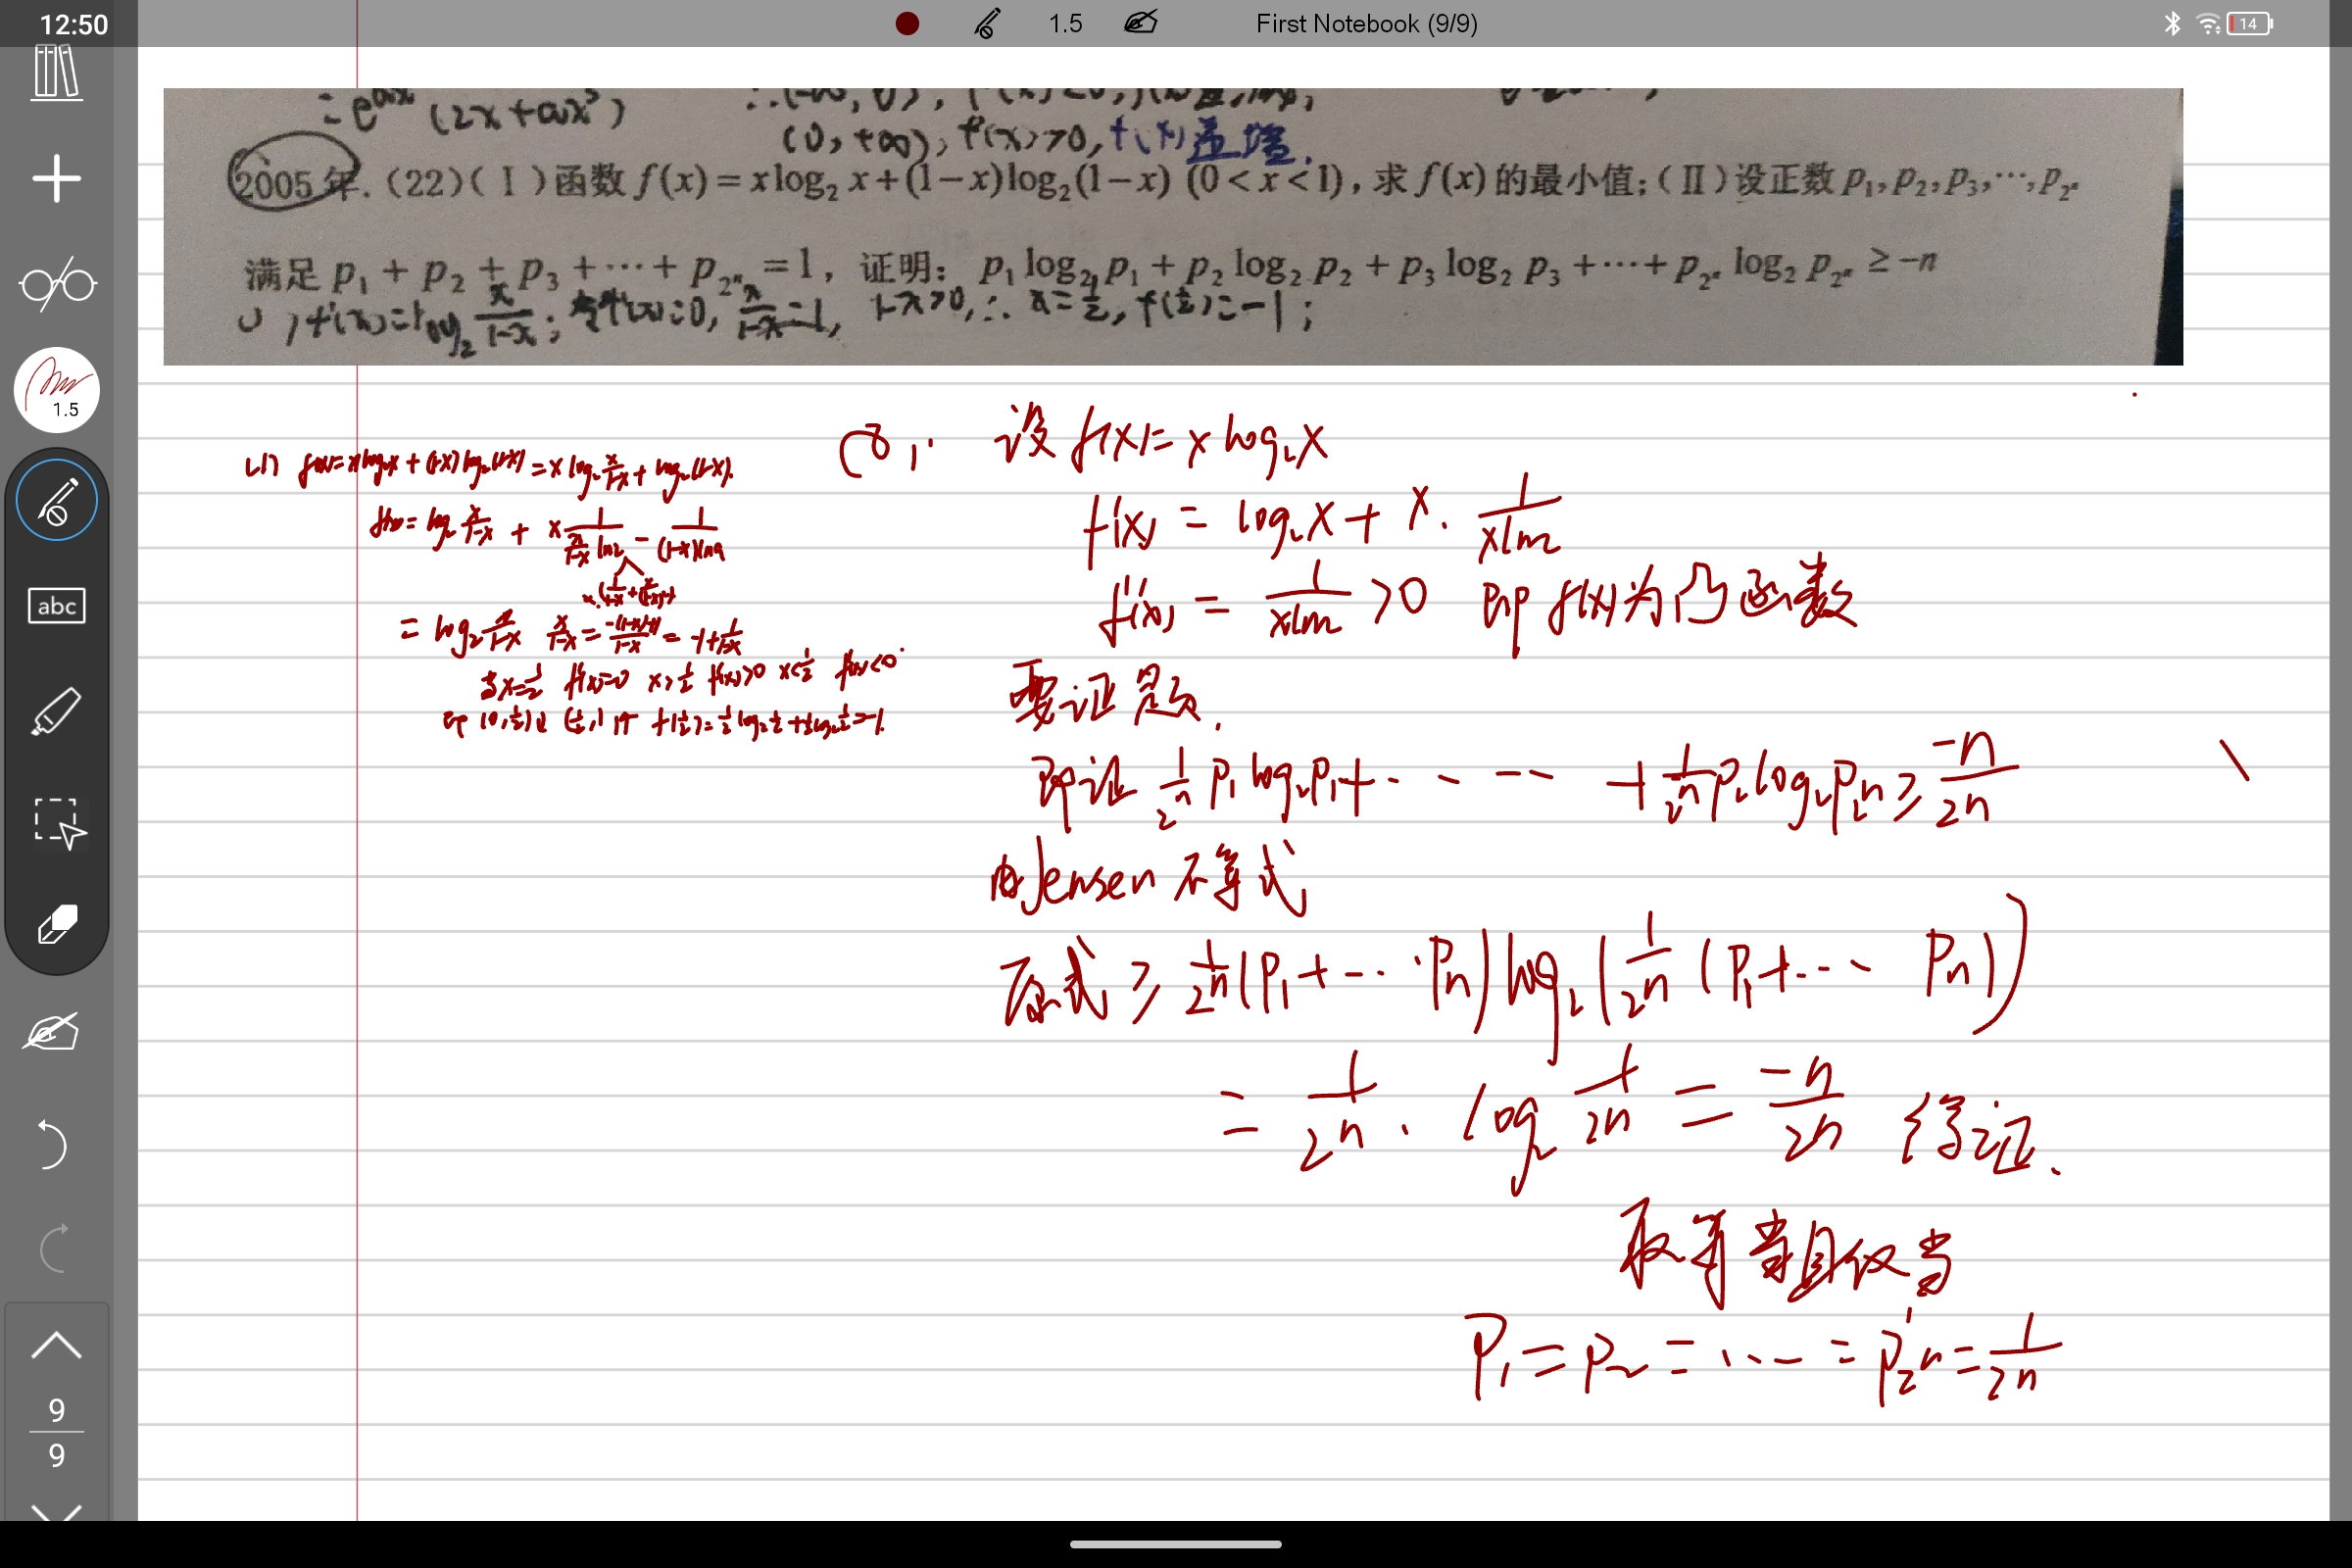 12:50
1.5
First Notebook (9/9)
14
= e^{ax}(2x+ax²)
(0,+∞), f'(x)>0, f(x)递增.
2005年.(22)(Ⅰ)函数 f(x)=xlog₂x+(1-x)log₂(1-x) (0<x<1),求 f(x)的最小值;(Ⅱ)设正数 p₁,p₂,p₃,…,p_{2ⁿ}
满足 p₁+p₂+p₃+…+p_{2ⁿ}=1, 证明: p₁log₂p₁+p₂log₂p₂+p₃log₂p₃+…+p_{2ⁿ}log₂p_{2ⁿ}≥-n
f'(x)=log₂ x/(1-x); 令f'(x)=0, x/(1-x)=1, 1-x>0, ∴ x=1/2, f(1/2)=-1;
1.5
abc
(1) f(x)=xlog₂x+(1-x)log₂(1-x)=xlog₂ x/(1-x)+log₂(1-x).
= log₂ x/(1-x)
当x=1/2 f'(x)=0 x>1/2 f'(x)>0 x<1/2 f'(x)<0
即(0,1/2)↓ (1/2,1)↑ f(1/2)=1/2log₂1/2+1/2log₂1/2=-1.
设 f(x)=xlog₂x
f'(x)=log₂x+x·1/(xln2)
f''(x)=1/(xln2)>0 即 f(x)为凸函数
要证题.
即证 1/2ⁿ p₁log₂p₁+······+1/2ⁿ p₂log₂p₂ⁿ≥-n/2ⁿ
由Jensen不等式
原式≥1/2ⁿ(p₁+···pₙ)log₂(1/2ⁿ(p₁+···pₙ))
=1/2ⁿ·log₂1/2ⁿ=-n/2ⁿ 得证.
取等当且仅当
p₁=p₂=···=p₂ⁿ=1/2ⁿ
9
9